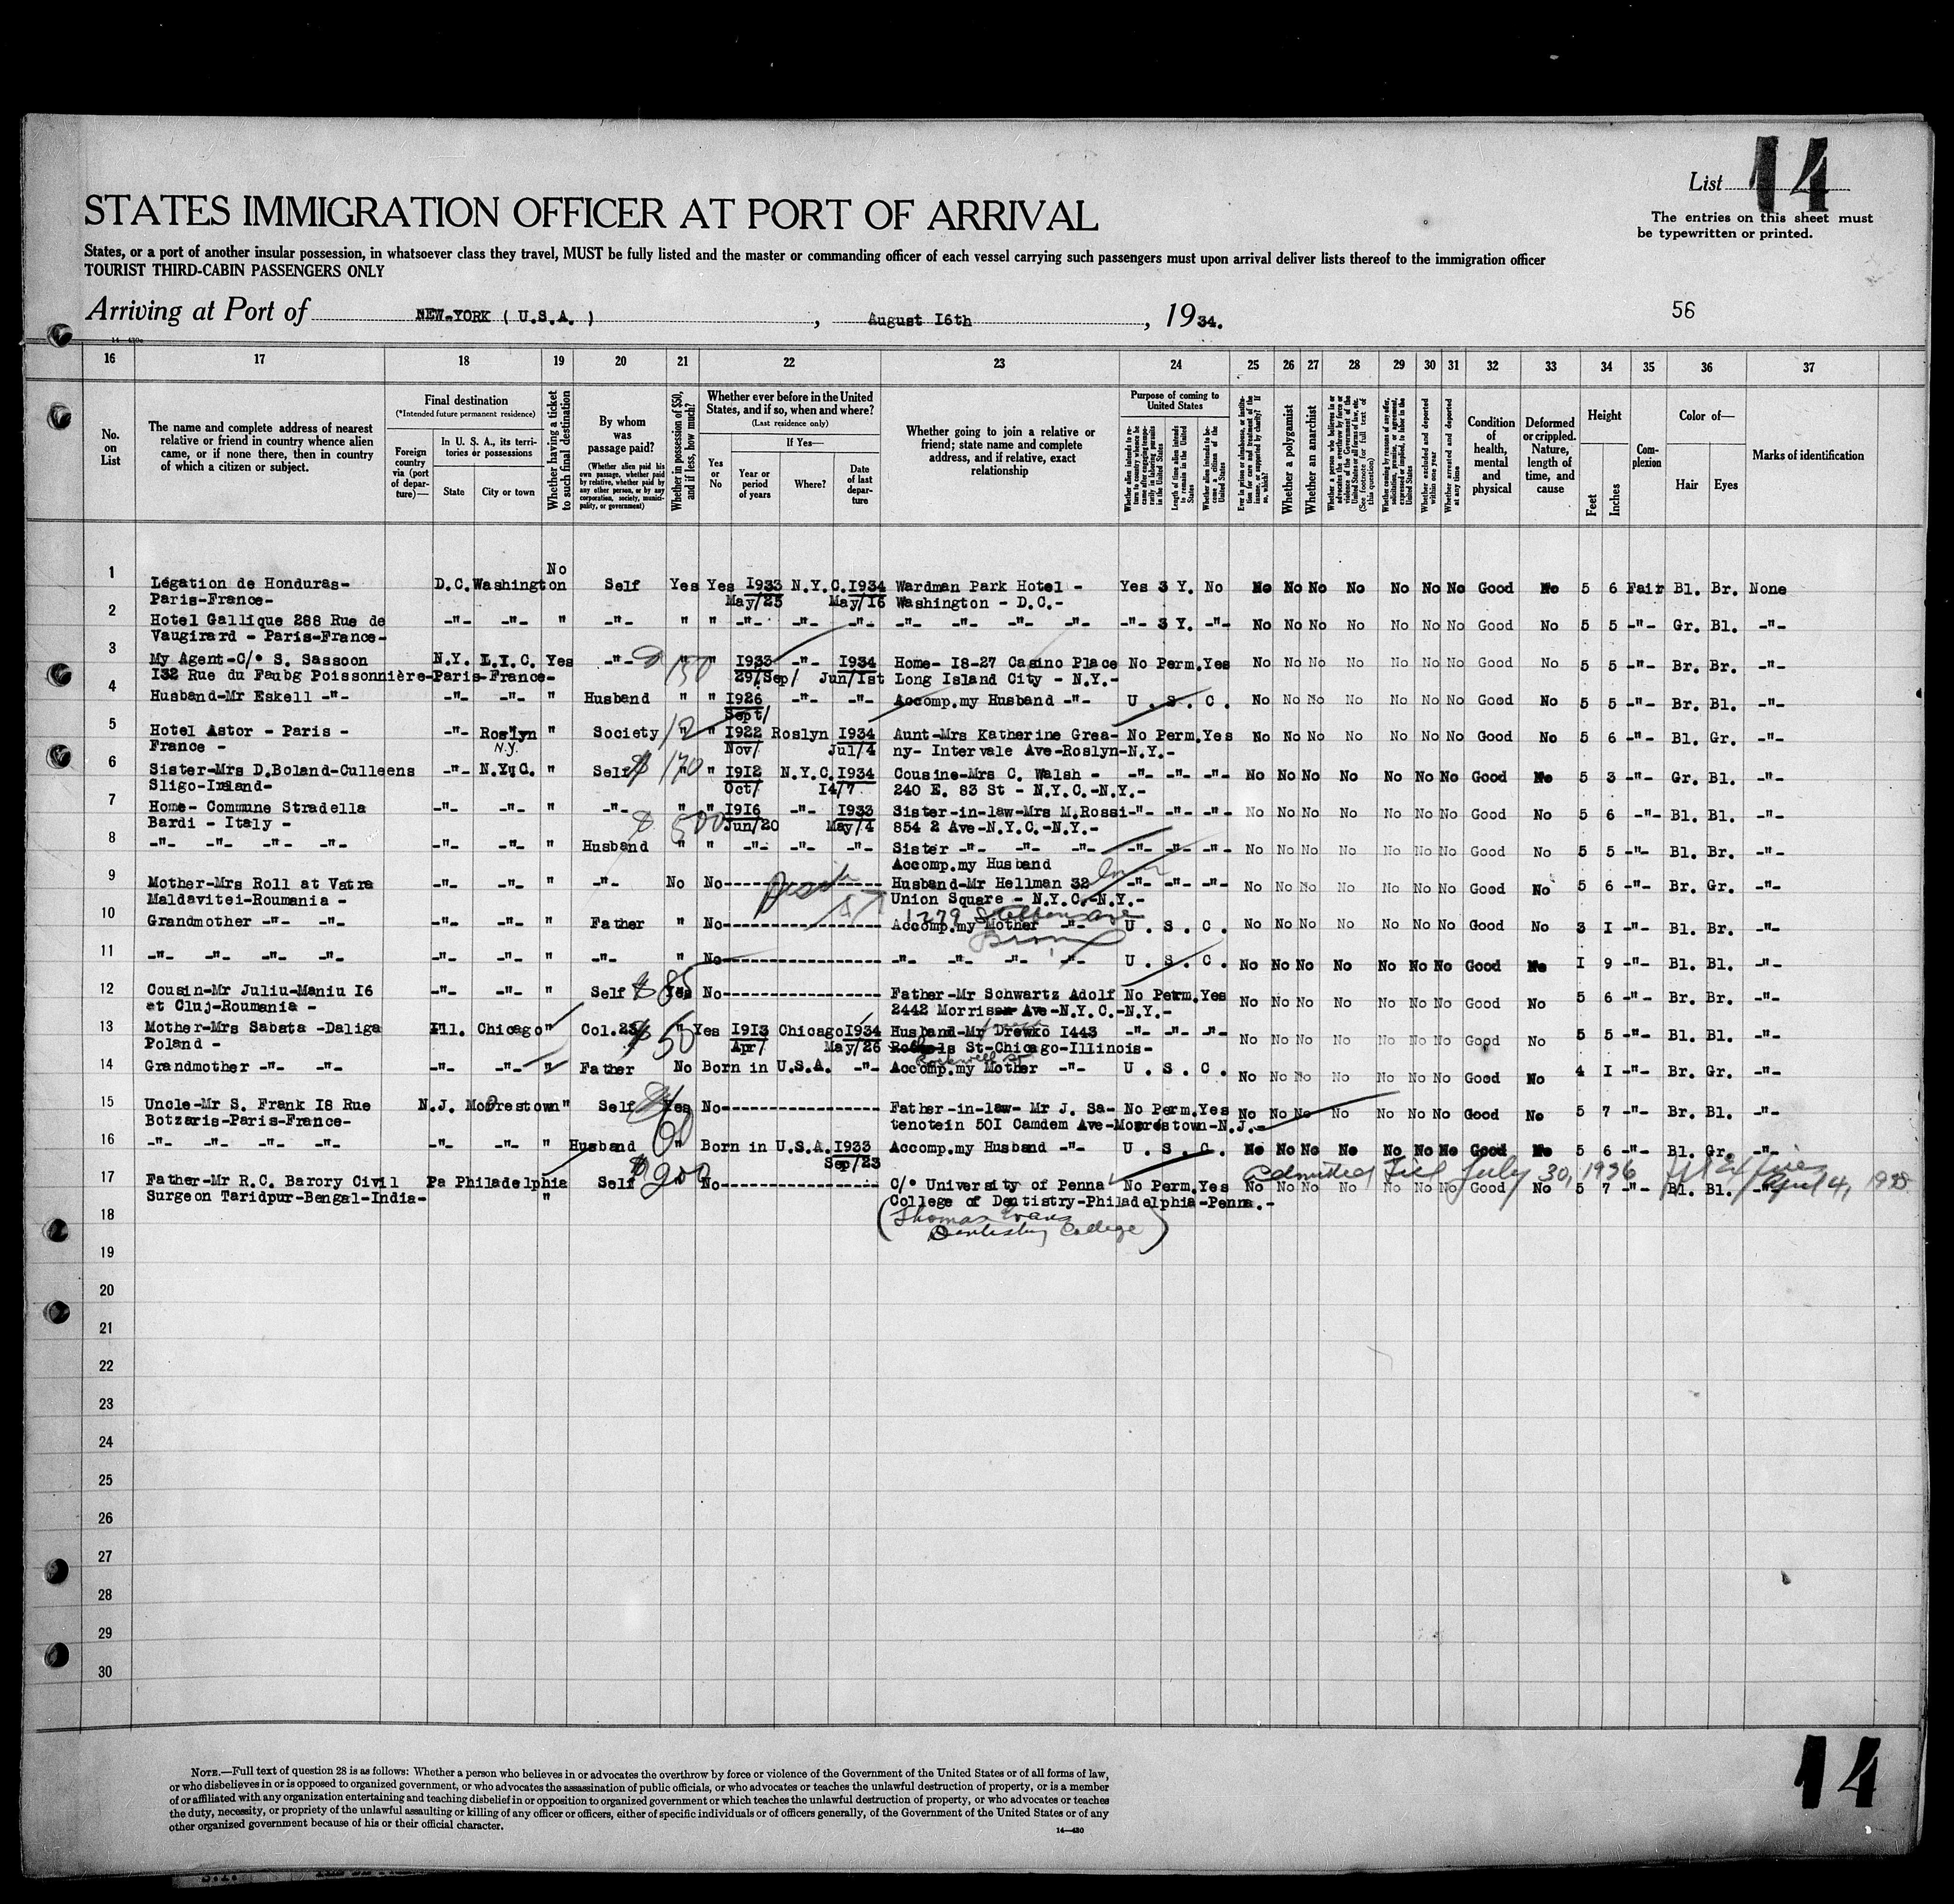 List 14
The entries on this sheet must
be typewritten or printed.
STATES IMMIGRATION OFFICER AT PORT OF ARRIVAL
States, or a port of another insular possession, in whatsoever class they travel, MUST be fully listed and the master or commanding officer of each vessel carrying such passengers must upon arrival deliver lists thereof to the immigration officer
TOURIST THIRD-CABIN PASSENGERS ONLY
Arriving at Port of NEW-YORK ( U.S.A. ) , August I6th , 1934.
56
16 17 18 19 20 21 22 23 24 25 26 27 28 29 30 31 32 33 34 35 36 37
No. on List
The name and complete address of nearest
relative or friend in country whence alien
came, or if none there, then in country
of which a citizen or subject.
Final destination
(*Intended future permanent residence)
Foreign country via (port of departure)—
In U. S. A., its territories or possessions
State
City or town
Whether having a ticket to such final destination
By whom was passage paid?
(Whether alien paid his own passage, whether paid by relative, whether paid by any other person, or by any corporation, society, municipality, or government)
Whether in possession of $50, and if less, how much?
Whether ever before in the United
States, and if so, when and where?
(Last residence only)
Yes or No
If Yes—
Year or period of years
Where?
Date of last departure
Whether going to join a relative or
friend; state name and complete
address, and if relative, exact
relationship
Purpose of coming to United States
Whether alien intends to return to country whence he came after engaging temporarily in laboring pursuits in the United States
Length of time alien intends to remain in the United States
Whether alien intends to become a citizen of the United States
Ever in prison or almshouse, or institution for care and treatment of the insane, or supported by charity? If so, which?
Whether a polygamist
Whether an anarchist
Whether a person who believes in or advocates the overthrow by force or violence of the Government of the United States or all forms of law, etc. (See footnote for full text of this question)
Whether coming by reason of any offer, solicitation, promise, or agreement, expressed or implied, to labor in the United States
Whether excluded and deported within one year
Whether arrested and deported at any time
Condition of health, mental and physical
Deformed or crippled. Nature, length of time, and cause
Height
Feet
Inches
Complexion
Color of—
Hair
Eyes
Marks of identification
1 Légation de Honduras- D.C. Washington No Self Yes Yes I933 N.Y.C. I934 Wardman Park Hotel - Yes 3 Y. No No No No No No No No Good No 5 6 Fair Bl. Br. None
Paris-France- May/23 May/I6 Washington - D.C.-
2 Hotel Gallique 288 Rue de -"- -"- " -"- " " -"- -"- -"- -"- -"- -"- -"- -"- 3 Y. -"- No No No No No No No Good No 5 5 -"- Gr. Bl. -"-
Vaugirard - Paris-France-
3 My Agent-C/° S. Sassoon N.Y. L.I.C. Yes -"- 150 " " I933 -"- I934 Home- I8-27 Casino Place No Perm. Yes No No No No No No No Good No 5 5 -"- Br. Br. -"-
I32 Rue du Faubg Poissonnière-Paris-France- 29/Sep/ Jun/Ist Long Island City - N.Y.-
4 Husband-Mr Eskell -"- -"- -"- " Husband " " I926 -"- -"- Accomp.my Husband -"- U . S . C . No No No No No No No Good No 5 5 -"- Br. Bl. -"-
Sept/
5 Hotel Astor - Paris - -"- Roslyn " Society 12 " " I922 Roslyn I934 Aunt-Mrs Katherine Grea- No Perm. Yes No No No No No No No Good No 5 6 -"- Bl. Gr. -"-
France - N.Y. Nov/ Jul/4 ny- Intervale Ave-Roslyn-N.Y.-
6 Sister-Mrs D.Boland-Culleens -"- N.Y.C. " Self $ 170 " " I9I2 N.Y.C. I934 Cousine-Mrs C. Walsh - -"- -"- -"- No No No No No No No Good No 5 3 -"- Gr. Bl. -"-
Sligo-Ireland- Oct/ I4/7 240 E. 83 St - N.Y.C.-N.Y.-
7 Home- Commune Stradella -"- -"- " -"- $ 500 " " I9I6 -"- I933 Sister-in-law-Mrs M.Rossi -"- -"- -"- No No No No No No No Good No 5 6 -"- Bl. Bl. -"-
Bardi - Italy - Jun/20 May/4 854 2 Ave-N.Y.C.-N.Y.-
8 -"- -"- -"- -"- -"- -"- " Husband " " -"- -"- -"- Sister -"- -"- -"- -"- -"- -"- No No No No No No No Good No 5 5 -"- Bl. Br. -"-
Accomp.my Husband
9 Mother-Mrs Roll at Vatra -"- -"- " -"- No No Husband-Mr Hellman 32 -"- -"- -"- No No No No No No No Good No 5 6 -"- Br. Gr. -"-
Maldavitei-Roumania - Union Square - N.Y.C.-N.Y.-
1279
10 Grandmother -"- -"- -"- -"- " Father " No Accomp.my Mother -"- U . S . C . No No No No No No No Good No 3 I -"- Bl. Br. -"-
Bronx
11 -"- -"- -"- -"- -"- -"- " -"- " No -"- -"- -"- -"- U . S . C . No No No No No No No Good No I 9 -"- Bl. Bl. -"-
12 Cousin-Mr Juliu-Maniu I6 -"- -"- " Self $ 85 Yes No Father-Mr Schwartz Adolf No Perm. Yes No No No No No No No Good No 5 6 -"- Br. Br. -"-
at Cluj-Roumania - 2442 Morrison Ave-N.Y.C.-N.Y.-
13 Mother-Mrs Sabata -Daliga Ill. Chicago " Col.23 $ 50 " Yes I9I3 Chicago I934 Husband-Mr Drewko I443 -"- -"- -"- No No No No No No No Good No 5 5 -"- Bl. Bl. -"-
Poland - Apr/ May/26 St-Chicago-Illinois-
Rockwell St
14 Grandmother -"- -"- -"- -"- " Father No Born in U.S.A. -"- Accomp.my Mother -"- U . S . C . No No No No No No No Good No 4 I -"- Br. Gr. -"-
15 Uncle-Mr S. Frank I8 Rue N.J. Moorestown " Self Yes No Father-in-law- Mr J. Sa- No Perm. Yes No No No No No No No Good No 5 7 -"- Br. Bl. -"-
Botzaris-Paris-France- 60 tenotein 50I Camdem Ave-Moorestown-N.J.-
16 -"- -"- -"- -"- -"- -"- " Husband " Born in U.S.A. I933 Accomp.my Husband -"- U . S . C . No No No No No No No Good No 5 6 -"- Bl. Gr. -"-
Sep/23
Admitted Till July 30, 1936 April 4, 1938
17 Father-Mr R.C. Barory Civil Pa Philadelphia " Self $ 200 " No C/° University of Penna No Perm. Yes No No No No No No No Good No 5 7 -"- Bl. Bl. -"-
Surgeon Taridpur-Bengal-India- College of Dentistry-Philadelphia-Penna.-
(Thomas Evans
Dentistry College)
18
19
20
21
22
23
24
25
26
27
28
29
30
NOTE.—Full text of question 28 is as follows: Whether a person who believes in or advocates the overthrow by force or violence of the Government of the United States or of all forms of law,
or who disbelieves in or is opposed to organized government, or who advocates the assassination of public officials, or who advocates or teaches the unlawful destruction of property, or is a member
of or affiliated with any organization entertaining and teaching disbelief in or opposition to organized government or which teaches the unlawful destruction of property, or who advocates or teaches
the duty, necessity, or propriety of the unlawful assaulting or killing of any officer or officers, either of specific individuals or of officers generally, of the Government of the United States or of any
other organized government because of his or their official character.
14—430
14